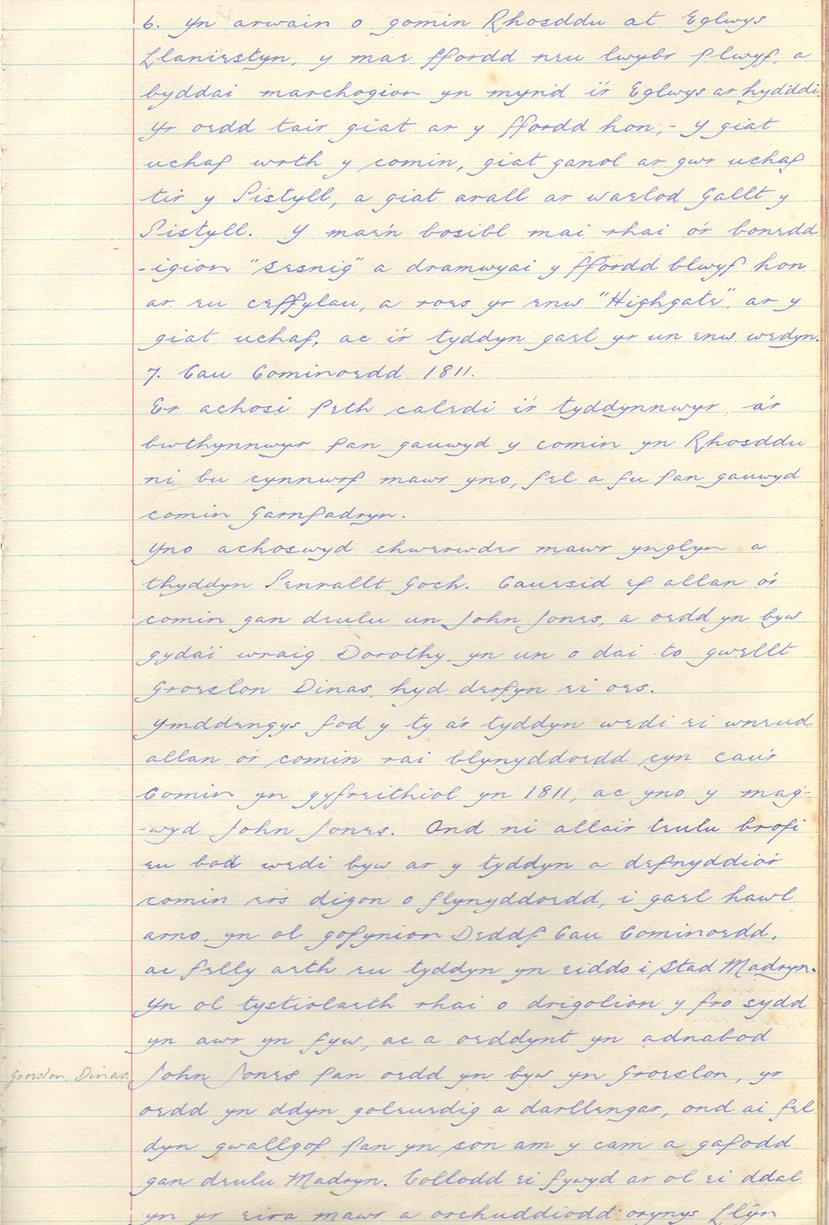 6. Yn arwain o gomin Rhosddu at Eglwys
Llaniestyn, y mae ffordd neu lwybr plwyf, a
byddai marchogion yn mynd i'r Eglwys ar hyd-ddi.
Yr oedd tair giat ar y ffordd hon, - Y giat
uchaf wrth y comin, giat ganol ar gwr uchaf
tir y Pistyll, a giat arall ar waelod Gallt y
Pistyll. Y mae'n bosibl mai rhai o'r bonedd
-igion "Sesnig" a dramwyai y ffordd blwyf hon
ar eu ceffylau, a roes yr enw "Highgate" ar y
giat uchaf, ac i'r tyddyn gael yr un enw wedyn.
7. Cau Cominoedd. 1811.
Er achosi peth caledi i'r tyddynnwyr, a'r
bwthynnwyr pan gauwyd y comin yn Rhosddu
ni bu cynnwrf mawr yno, fel a fu pan gauwyd
comin Garnfadryn.
Yno achoswyd chwerwder mawr ynglyn a
thyddyn Penrallt Goch. Cauesid ef allan o'r
comin gan deulu un John Jones, a oedd yn byw
gyda'i wraig Dorothy, yn un o dai to gwellt
Groeslon Dinas, hyd derfyn ei oes.
Ymddengys fod y ty a'r tyddyn wedi ei wneud
allan o'r comin rai blynyddoedd cyn cau'r
Comin yn gyfreithiol yn 1811, ac yno y mag-
-wyd John Jones. Ond ni allai'r teulu brofi
eu bod wedi byw ar y tyddyn a defnyddio'r
comin ers digon o flynyddoedd, i gael hawl
arno, yn ol gofynion Deddf Cau Cominoedd,
ac felly aeth eu tyddyn yn eiddo i Stad Madryn.
Yn ol tystiolaeth rhai o drigolion y fro sydd
yn awr yn fyw, ac a oeddynt yn adnabod
Groeslon, Dinas.
John Jones pan oedd yn byw yn Groeslon, yr
oedd yn ddyn goleuedig a darllengar, ond ai fel
dyn gwallgof pan yn son am y cam a gafodd
gan deulu Madryn. Collodd ei fywyd ar ol ei ddal
yn yr eira mawr a orchuddiodd orynys Llŷn